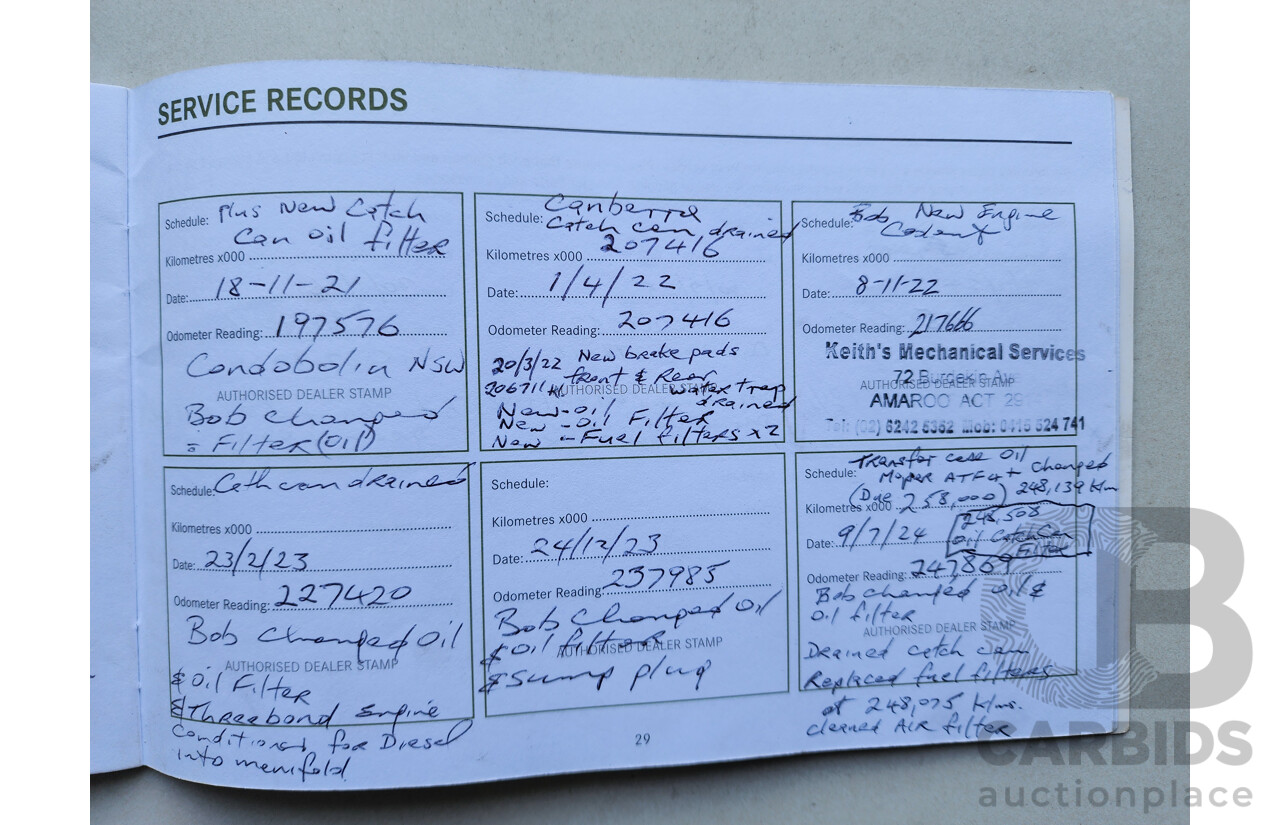 SERVICE RECORDS
Schedule: Plus New Catch
Can oil filter
Kilometres x000
Date: 18-11-21
Odometer Reading: 197576
Condobolin NSW
AUTHORISED DEALER STAMP
Bob Changed
= Filter (oil)
Canberra
Schedule: Catch can drained
Kilometres x000 207416
Date: 1/4/22
Odometer Reading: 207416
20/3/22 New brake pads
206711 kl front & Rear
AUTHORISED DEALER STAMP
water trap
drained
New-oil
New - oil Filter
New - Fuel filters x2
Schedule: Bob New Engine
Kilometres x000
Date: 8-11-22
Odometer Reading: 217666
Keith's Mechanical Services
72 Burdekin Ave
AUTHORISED DEALER STAMP
AMAROO ACT 29
Tel: (02) 6242 6362 Mob: 0415 524 741
Schedule: Cathcan drained
Kilometres x000
Date: 23/2/23
Odometer Reading: 227420
Bob changed oil
AUTHORISED DEALER STAMP
& oil Filter
& Threebond Engine
conditioner for Diesel
into manifold
Schedule:
Kilometres x000
Date: 24/12/23
Odometer Reading: 237985
Bob Changed oil
& oil filter
AUTHORISED DEALER STAMP
& sump plug
Transfer case oil
Schedule: Moper ATF4+ changed
(Due 258,000) 248,139 Klm
Kilometres x000
248,508
oil Catch Can
Filter
Date: 9/7/24
Odometer Reading: 247869
Bob changed oil &
oil filter
AUTHORISED DEALER STAMP
Drained catch can
Replaced fuel filteres
at 248,075 Klms.
cleaned AIR filter
29
CARBIDS
auctionplace